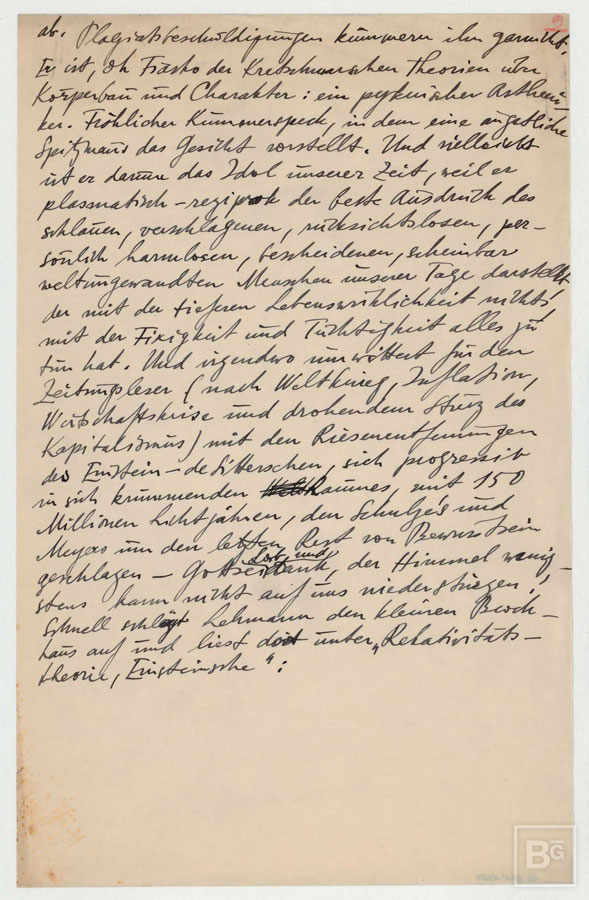 2
ab. Plagiatsbeschuldigungen kümmern ihn garnicht.
Er ist, oh Fiasko der Kretschmerschen Theorien über
Körperbau und Charakter: ein pyknischer Astheni-
ker. Fröhlicher Kummerspeck, in dem eine ängstliche
Spitzmaus das Gesicht vorstellt. Und vielleicht
ist er darum das Idol unserer Zeit, weil er
plasmatisch-reziprok der beste Ausdruck des
schlauen, verschlagenen, rücksichtslosen, per-
sönlich harmlosen, bescheidenen, scheinbar
weltungewandten Menschen unserer Tage darstellt,
der mit der tieferen Lebenswirklichkeit nichts,
mit der Fixigkeit und Tüchtigkeit alles zu
tun hat. Und irgendwo umwöttert für den
Zeitungsleser (nach Weltkrieg, Inflation,
Wirtschaftskrise und drohendem Sturz des
Kapitalismus) mit den Riesenentfernungen
des Einstein-de Sitterschen, sich progressiv
in sich krümmenden Raumes, mit 150
Millionen Lichtjahren, den Schulzes und
Meyers um den letzten Rest von Bewusstsein
geschlagen – Gottseidank, der Himmel wenig-
stens kann nicht auf uns niederstürzen!,
Schnell schlägt Lehmann den kleinen Brock-
haus auf und liest dort unter „Relativitäts-
theorie, Einsteinsche":
BG